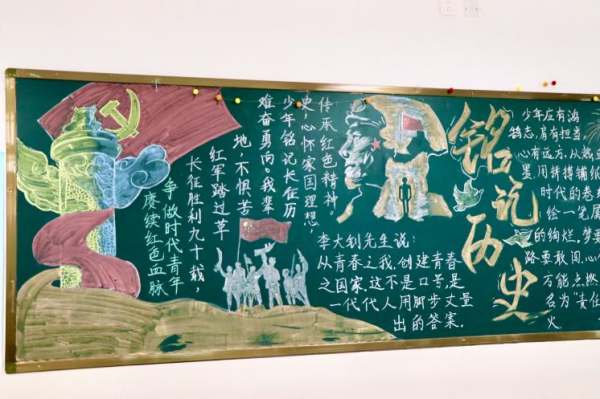 赓续红色血脉
争做时代青年
长征胜利九十载,
红军踏过草
地,不惧苦
难奋勇向。我辈
少年铭记长征历
史,心怀家国理想
传承红色精神。
李大钊先生说:
从青春之我,创建青春
之国家,这不是口号,是
一代代人用脚步丈量
出的答案。
铭记历史
少年应有鸿
鹄志,肩有担当
心有远方,从热
墨,用拼搏铺纸
时代的卷
绘一笔属
的绚烂,梦要
路要敢闯,心
方能点燃
名为“责任
火